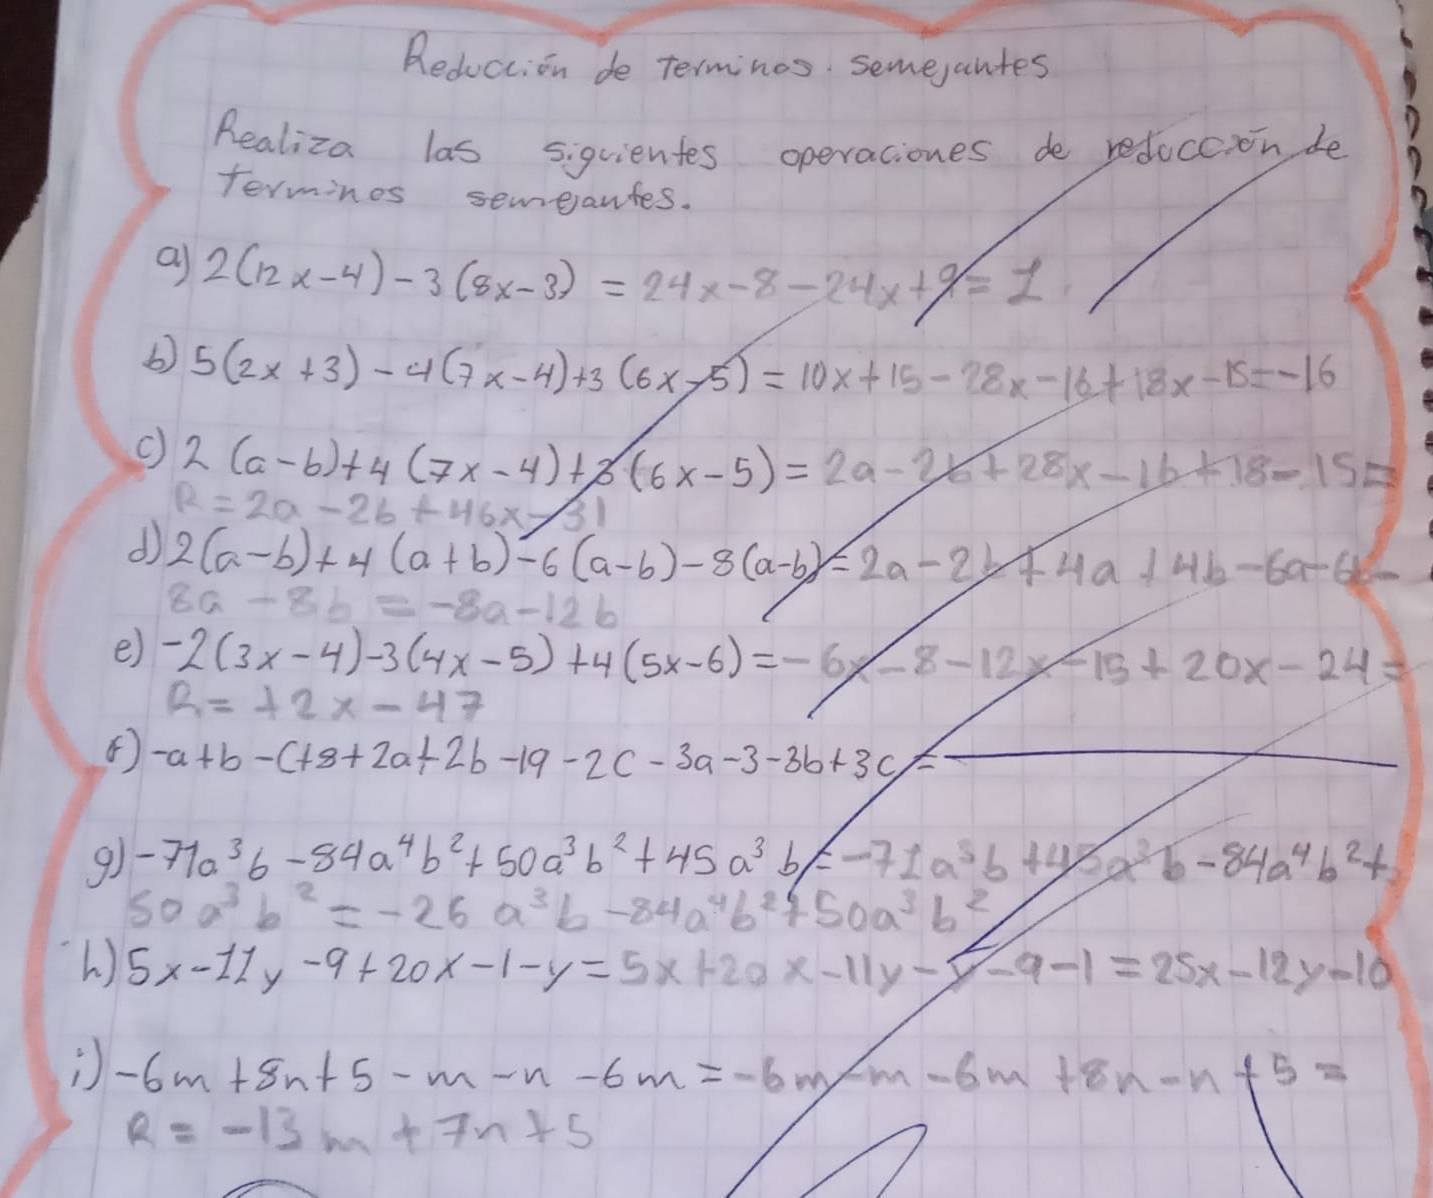 Reducción de terminos. semejantes
Realiza las siguientes operaciones de reducción de
terminos semejantes.
a) 2(12x-4)-3(8x-3) = 24x-8-24x+9=1
b) 5(2x+3)-4(7x-4)+3(6x-5) = 10x+15-28x-16+18x-15=-16
c) 2(a-b)+4(7x-4)+3(6x-5) = 2a-2b+28x-16+18-15=
R=2a-2b+46x-31
d) 2(a-b)+4(a+b)-6(a-b)-8(a-b)=2a-2b+4a+4b-6a-6b-
8a-8b=-8a-12b
e) -2(3x-4)-3(4x-5)+4(5x-6)=-6x-8-12x-15+20x-24=
R=+2x-47
f) -a+b-c+8+2a+2b-19-2c-3a-3-3b+3c=
g) -71a³b-84a⁴b²+50a³b²+45a³b=-71a³b+45a³b-84a⁴b²+
50a³b²=-26a³b-84a⁴b²+50a³b²
h) 5x-11y-9+20x-1-y=5x+20x-11y-y-9-1=25x-12y-10
i) -6m+8n+5-m-n-6m=-6m-m-6m+8n-n+5=
R=-13m+7n+5